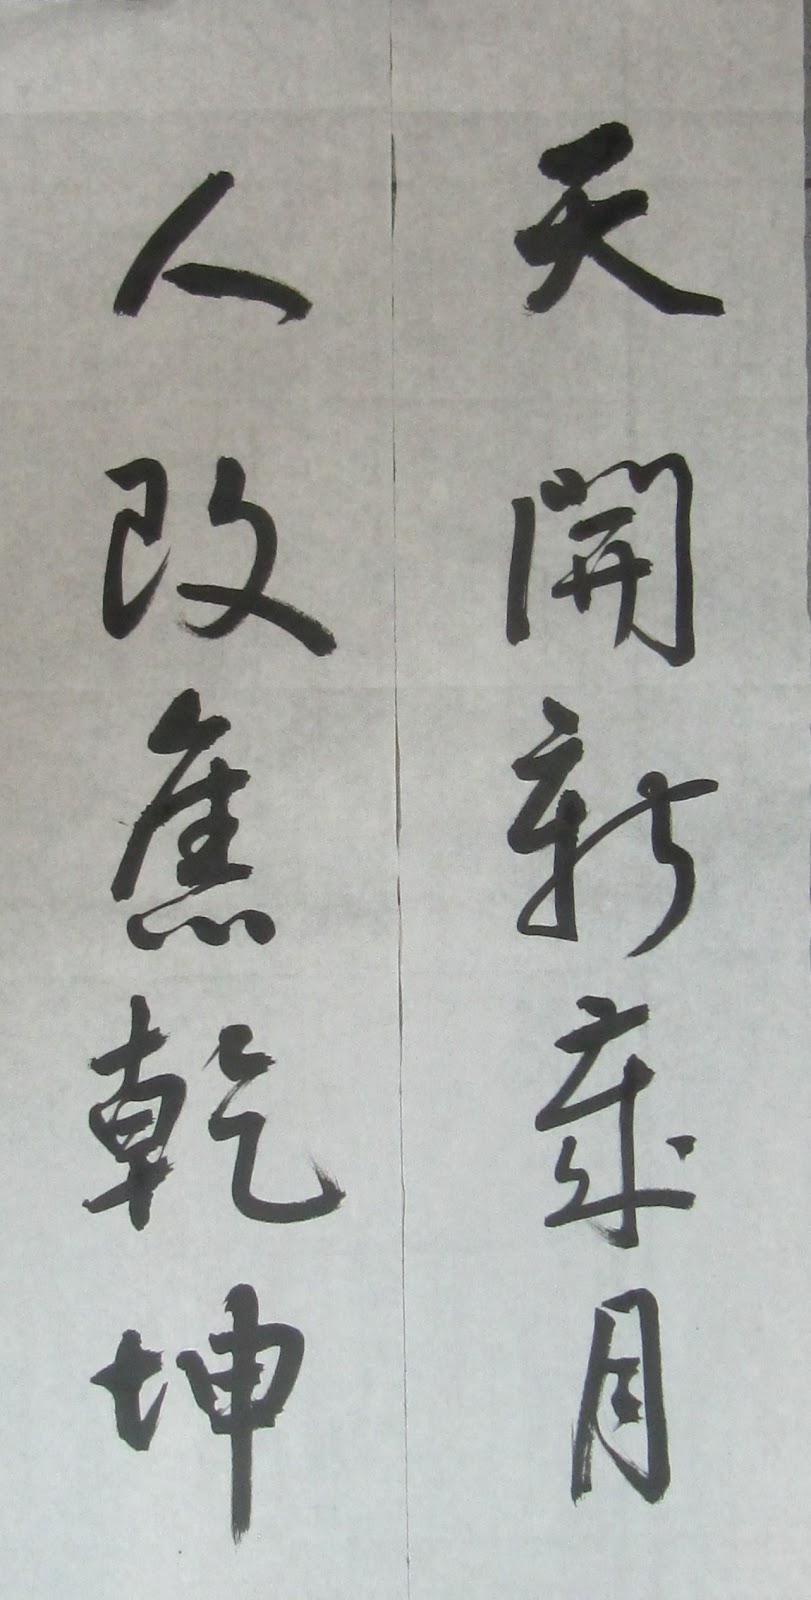 天開新歲月
人改舊乾坤